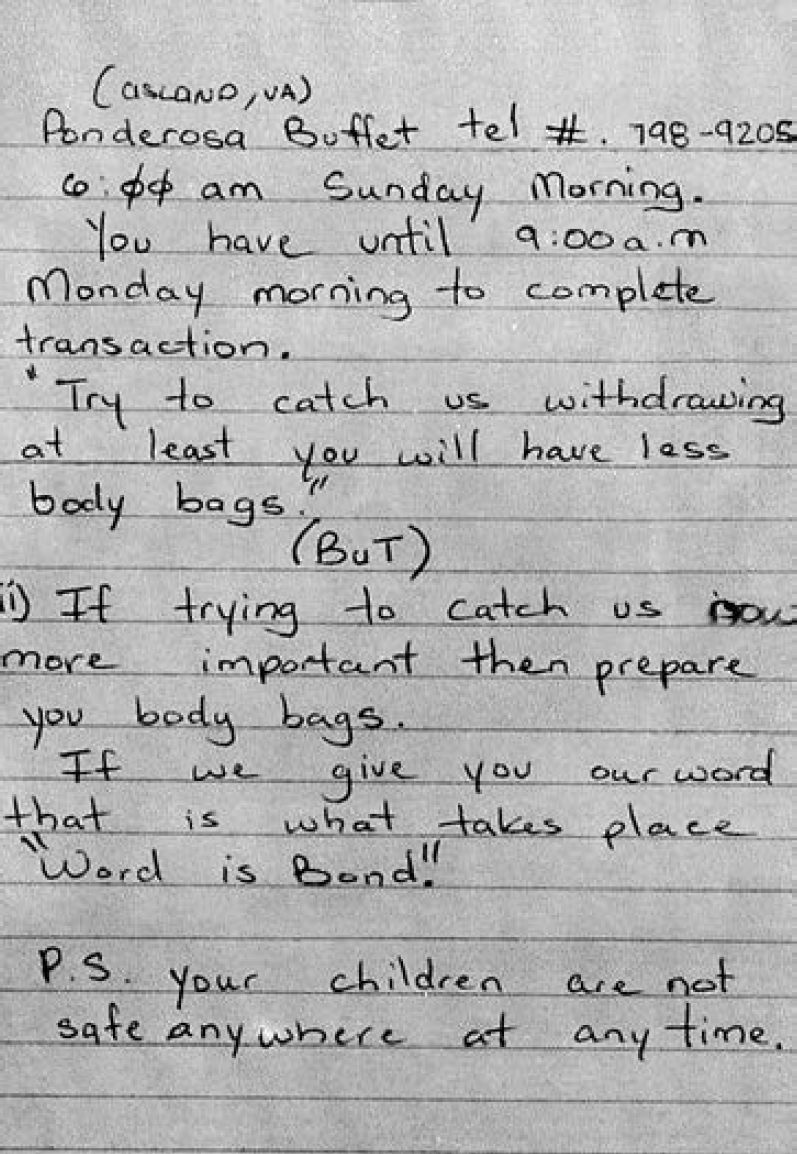 (ASLAND, VA)
Ponderosa Buffet tel #. 798-9205
6:00 am Sunday Morning.
You have until 9:00 a.m
Monday morning to complete
transaction.
"Try to catch us withdrawing
at least you will have less
body bags."
(BuT)
ii) If trying to catch us now
more important then prepare
you body bags.
If we give you our word
that is what takes place
"Word is Bond."
P.S. your children are not
safe anywhere at any time.